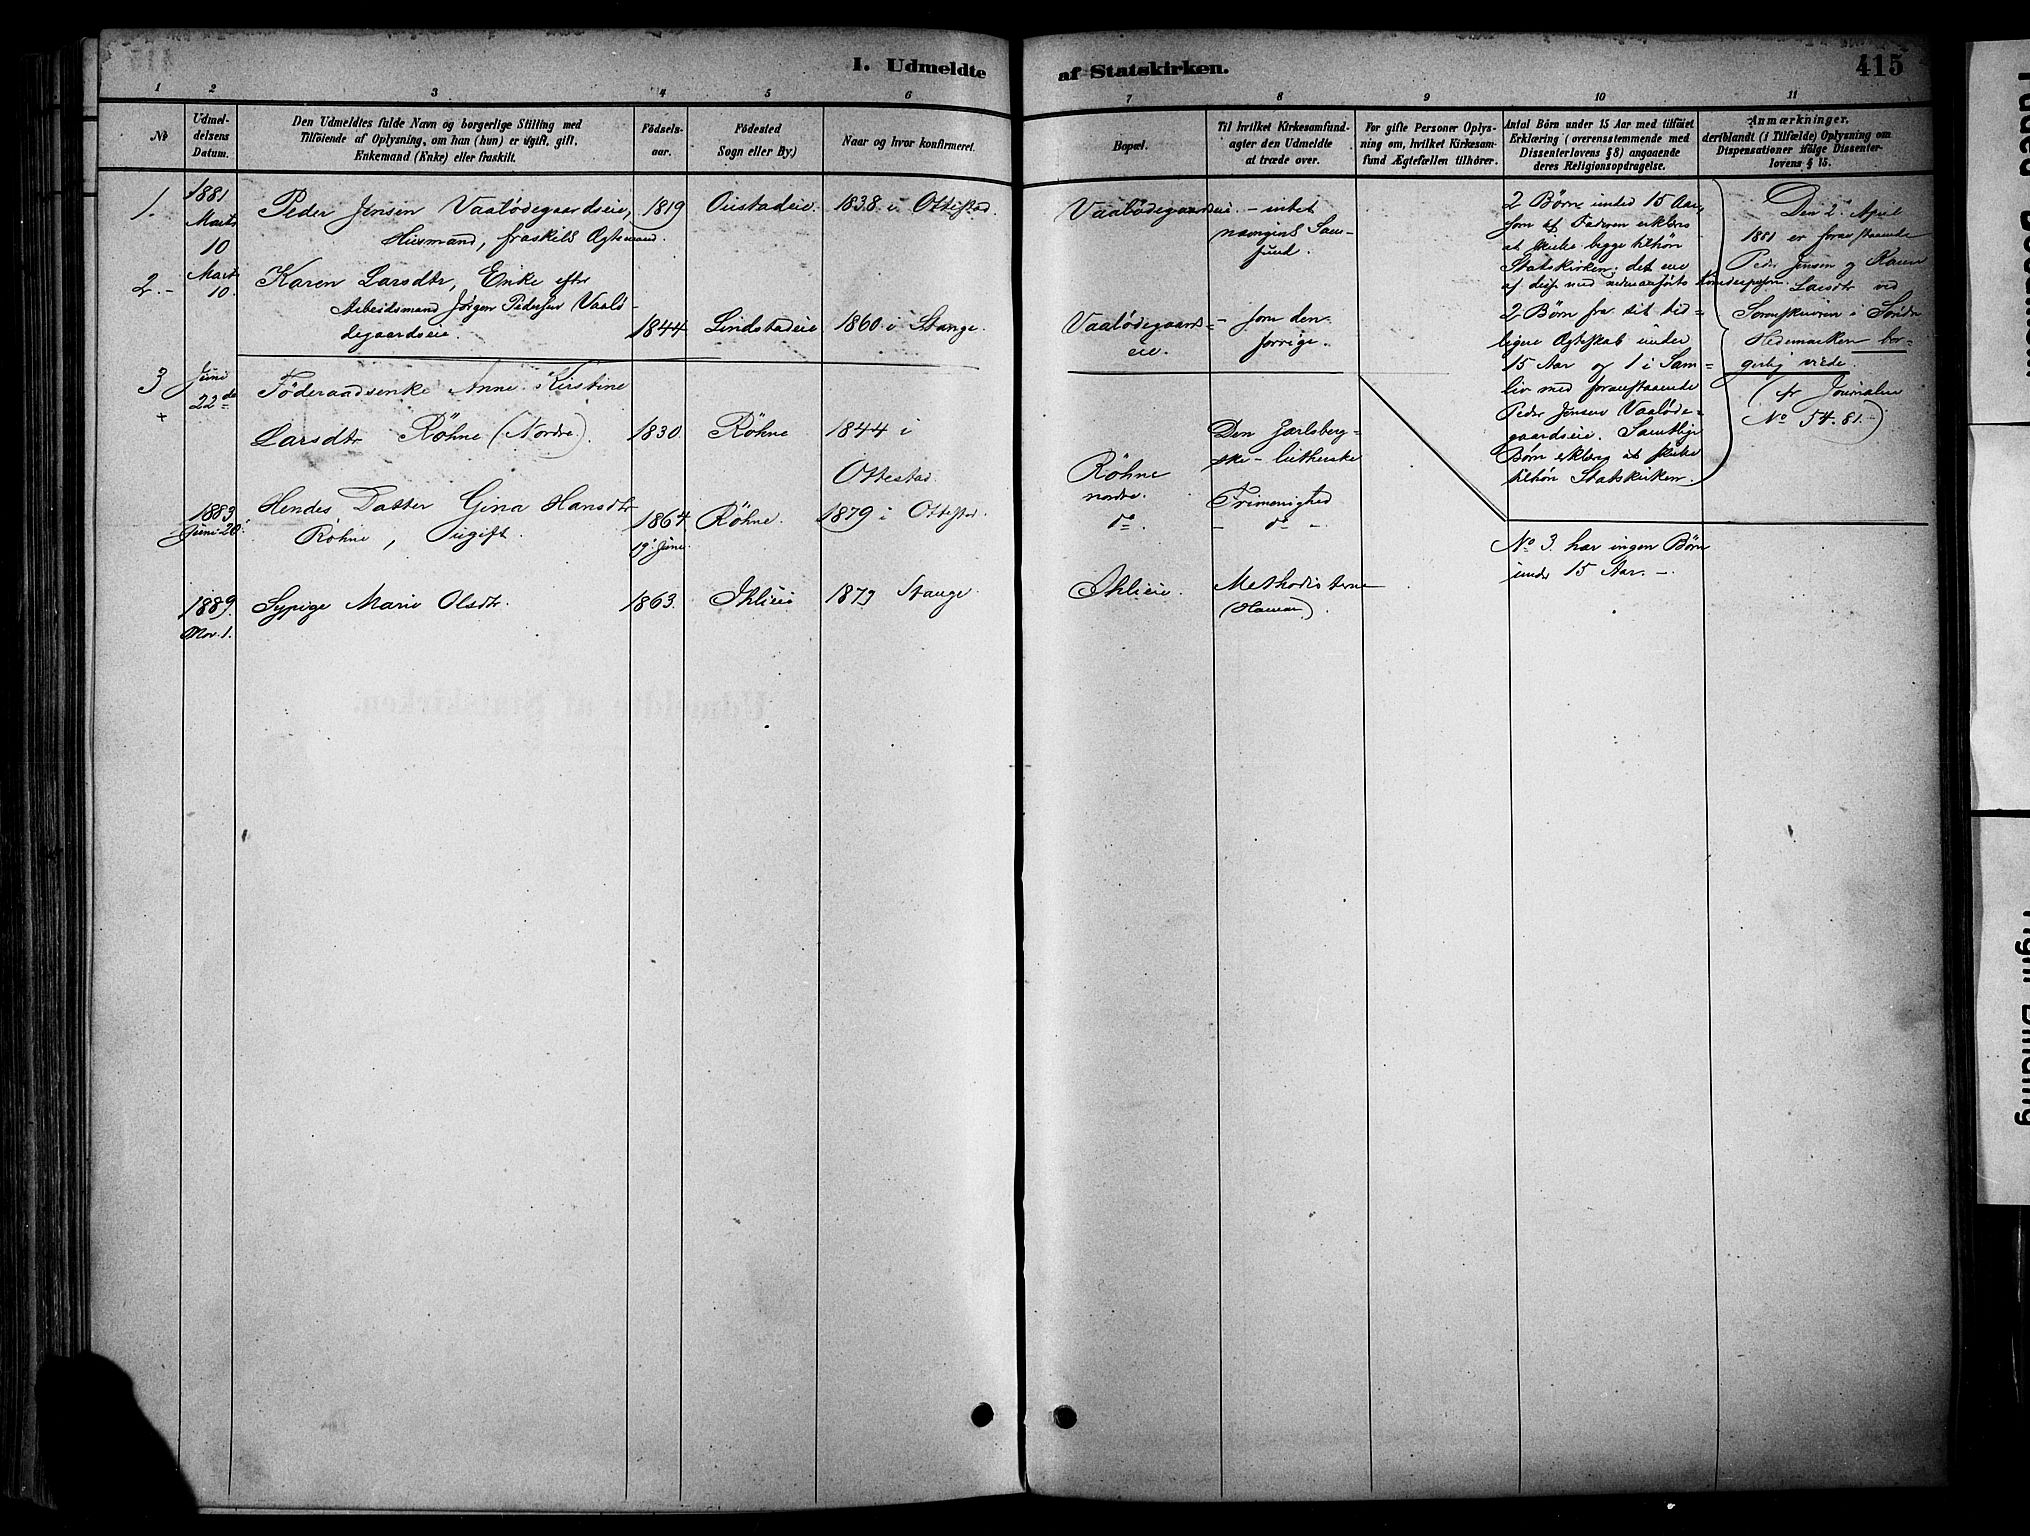 I. Udmeldte af Statskirken.
415
1 2 3 4 5 6 7 8 9 10 11
No
Udmel-
delsens
Datum.
Den Udmeldtes fulde Navn og borgerlige Stilling med
Tilföiende af Oplysning, om han (hun) er ugift, gift,
Enkemand (Enke) eller fraskilt.
Födsels-
aar.
Födested
Sogn eller By.)
Naar og hvor konfirmeret.
Bopæl.
Til hvilket Kirkesamfund-
agter den Udmeldte
at træde over.
For gifte Personer Oplys-
ning om, hvilket Kirkesam-
fund Ægtefællen tilhörer.
Antal Börn under 15 Aar med tilföiet
Erklæring (overensstemmende med
Dissenterlovens § 8) angaaende
deres Religionsopdragelse.
Anmærkninger,
deriblandt (i Tilfælde) Oplysning om
Dispensationer ifölge Dissenter-
lovens § 15.
1.
1881
Marts
10
Peder Jensen Vaalødegaardseie,
Husmand, fraskilt Ægtemand.
1819
1838 i Ottestad
Vaalødegaardseie
- intet
nævgivet Sam-
fund.
2 Børn under 15 Aar,
som af Faderen erklæres
at skulle begge tilhøre
Statskirken; det ene
af disse med nedenanførte Kvindeperson.
Den 2den April
1881 er foranstaaende
Peder Jensen og Karen
Larsdtr ved
Sorenskriveren i Søndre
Hedemarken bor-
gerlig viede.
(cfr Journalen
No 54. 81.-)
2.-
Marts
10.
Karen Larsdtr, Enke efter
Arbeidsmand Jørgen Pedersen Vaalø-
degaardseie.
1844
Lindstadeie
1860 i Stange.
Vaalødegaards=
eie.
- som den
forrige.
2 Børn fra sit tid-
ligere Ægteskab under
15 Aar og 1 i Sam-
liv med foranstaaende
Peder Jensen Vaaløde-
gaardseie. Samtlige
Børn erklæres at skulle
tilhøre Statskirken.
3
+
Juni
22de
Föderaadsenke Anne Kirstine
Larsdtr Röhne (Nordre).
1830
Röhne
1844 i
Ottestad.
Röhne
nordre.
Den Jarlsberg-
ske-lutherske
Frimenighed
No 3. har ingen Børn
under 15 Aar. -
1883
Juni 26.
Hendes Datter Gina Hansdtr
Röhne, Ugift.
1864
19. Juni
Röhne.
1879 i Ottestad
do
- do -
1889.
Nov. 1.
Sypige Marie Olsdtr.
1863.
Ihlieie
1879 Stange
Ihlieie.
Methodisterne
(Hamar)